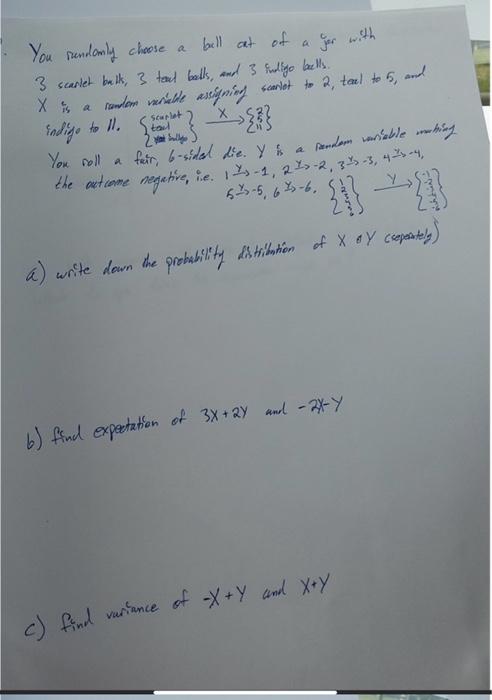 You randomly choose a ball out of a jar with
3 scarlet balls, 3 teal balls, and 3 indigo balls.
X is a random variable assigning scarlet to 2, teal to 5, and
indigo to 11. { scarlet teal indigo } X→ { 2 5 11 }
You roll a fair, 6-sided die. Y is a random variable making
the outcome negative, i.e. 1 Y→ -1, 2 Y→ -2, 3 Y→ -3, 4 Y→ -4,
5 Y→ -5, 6 Y→ -6. { 1 2 3 4 5 6 } Y→ { -1 -2 -3 -4 -5 -6 }
a) write down the probability distribution of X & Y (seperately)
b) find expectation of 3X+2Y and -2X-Y
c) find variance of -X+Y and X+Y